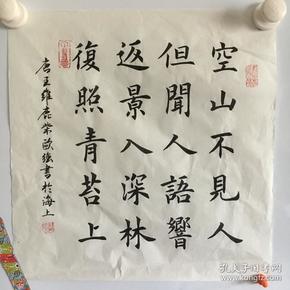 空山不見人
但聞人語響
返景入深林
復照青苔上
唐王維鹿柴歐強書於海上
孔夫子旧书网